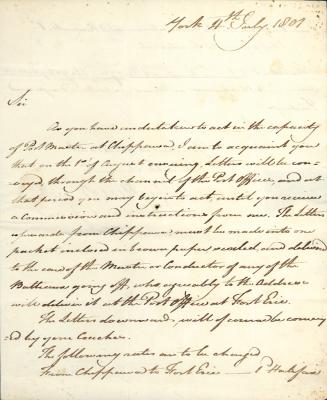 York 4th July 1801
Sir
As you have undertaken to act in the capacity
of Post Master at Chippewa, I am to acquaint you
that on the 1st of August ensuing, Letters will be con-
veyed, through the channel of the Post Office, and at
that period you may begin to act, until you receive
a Commission and instructions from me. The Letters
upwards from Chippewa must be made into one
packet inclosed in brown paper sealed, and delivered
to the care of the Master or Conductor of any of the
Batteaux going off, who agreeably to the Address
will deliver it at the Post Office at Fort Erie.
The Letters downward, will of course be convey-
ed by your Couriers.
The following rates are to be charged
From Chippewa to Fort Erie — 1d Halifax